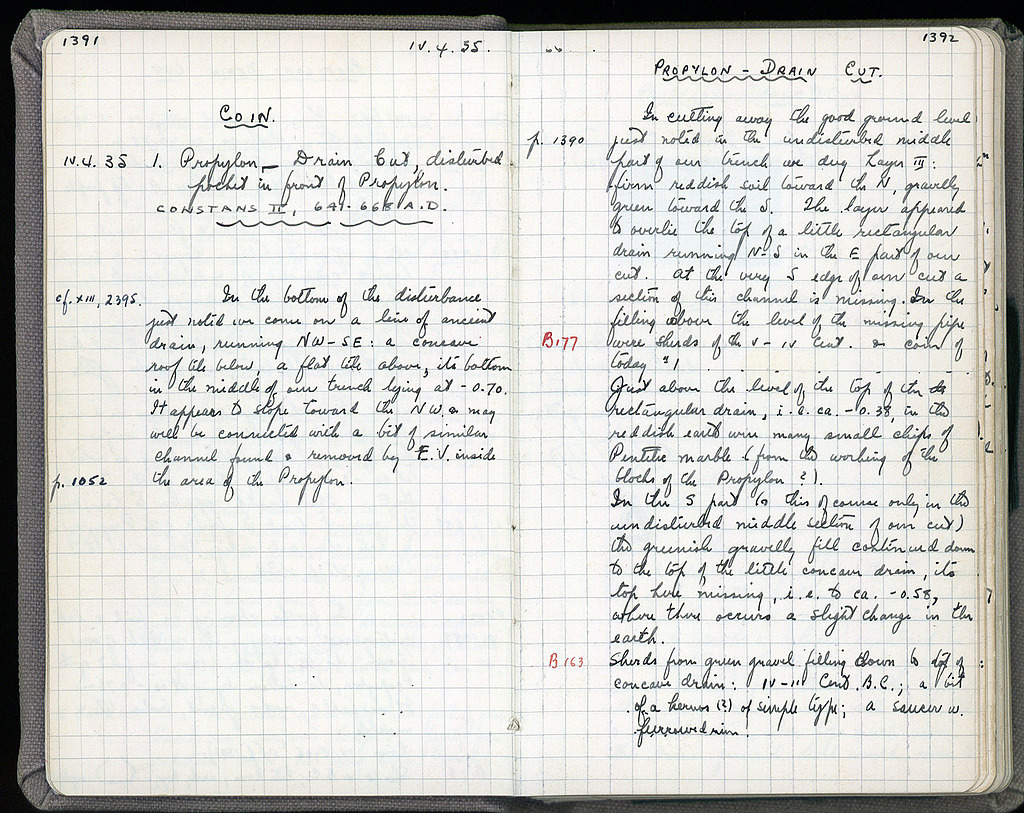 1391
IV. 4. 35.
COIN.
IV. 4. 35 1. Propylon – Drain Cut, disturbed
pocket in front of Propylon.
CONSTANS II, 641-668 A.D.
cf. XIII, 2395. In the bottom of the disturbance
just noted we come on a line of ancient
drain, running NW-SE: a concave
roof tile below, a flat tile above, its bottom
in the middle of our trench lying at -0.70.
It appears to slope toward the NW & may
well be connected with a bit of similar
channel found & removed by E.V. inside
p. 1052 the area of the Propylon.
1392
PROPYLON – DRAIN CUT.
In cutting away the good ground level
p. 1390 just noted in the undisturbed middle
part of our trench we dug Layer III:
firm reddish soil toward the N, gravelly
green toward the S. The layer appeared
to overlie the top of a little rectangular
drain running N-S in the E part of our
cut. At the very S edge of our cut a
section of this channel is missing. In the
filling above the level of the missing pipe
B177 were sherds of the V-IV Cent. & coin of
today #1
Just above the level of the top of the
rectangular drain, i.e. ca. -0.38, in the
reddish earth were many small chips of
Pentelic marble (from the working of the
blocks of the Propylon?).
In the S part (& this of course only in the
undisturbed middle section of our cut)
the greenish gravelly fill continued down
to the top of the little concave drain, its
top here missing, i.e. to ca. -0.58,
where there occurs a slight change in the
earth.
B163 Sherds from green gravel filling down to top of
concave drain: IV-III Cent. B.C.; a bit
of a kernos (?) of simple type; a saucer w.
furrowed rim.